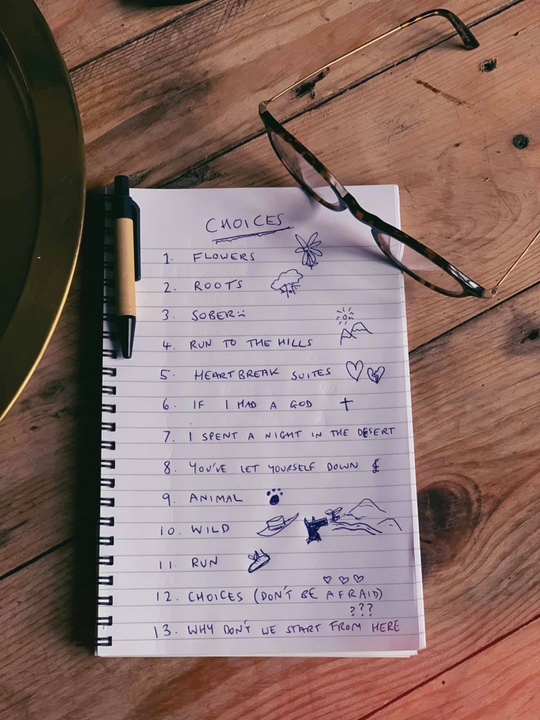 CHOICES
1. FLOWERS
2. ROOTS
3. SOBER
4. RUN TO THE HILLS
5. HEARTBREAK SUITES
6. IF I HAD A GOD
7. I SPENT A NIGHT IN THE DESERT
8. YOU'VE LET YOURSELF DOWN £
9. ANIMAL
10. WILD
11. RUN
12. CHOICES (DON'T BE AFRAID)
???
13. WHY DON'T WE START FROM HERE